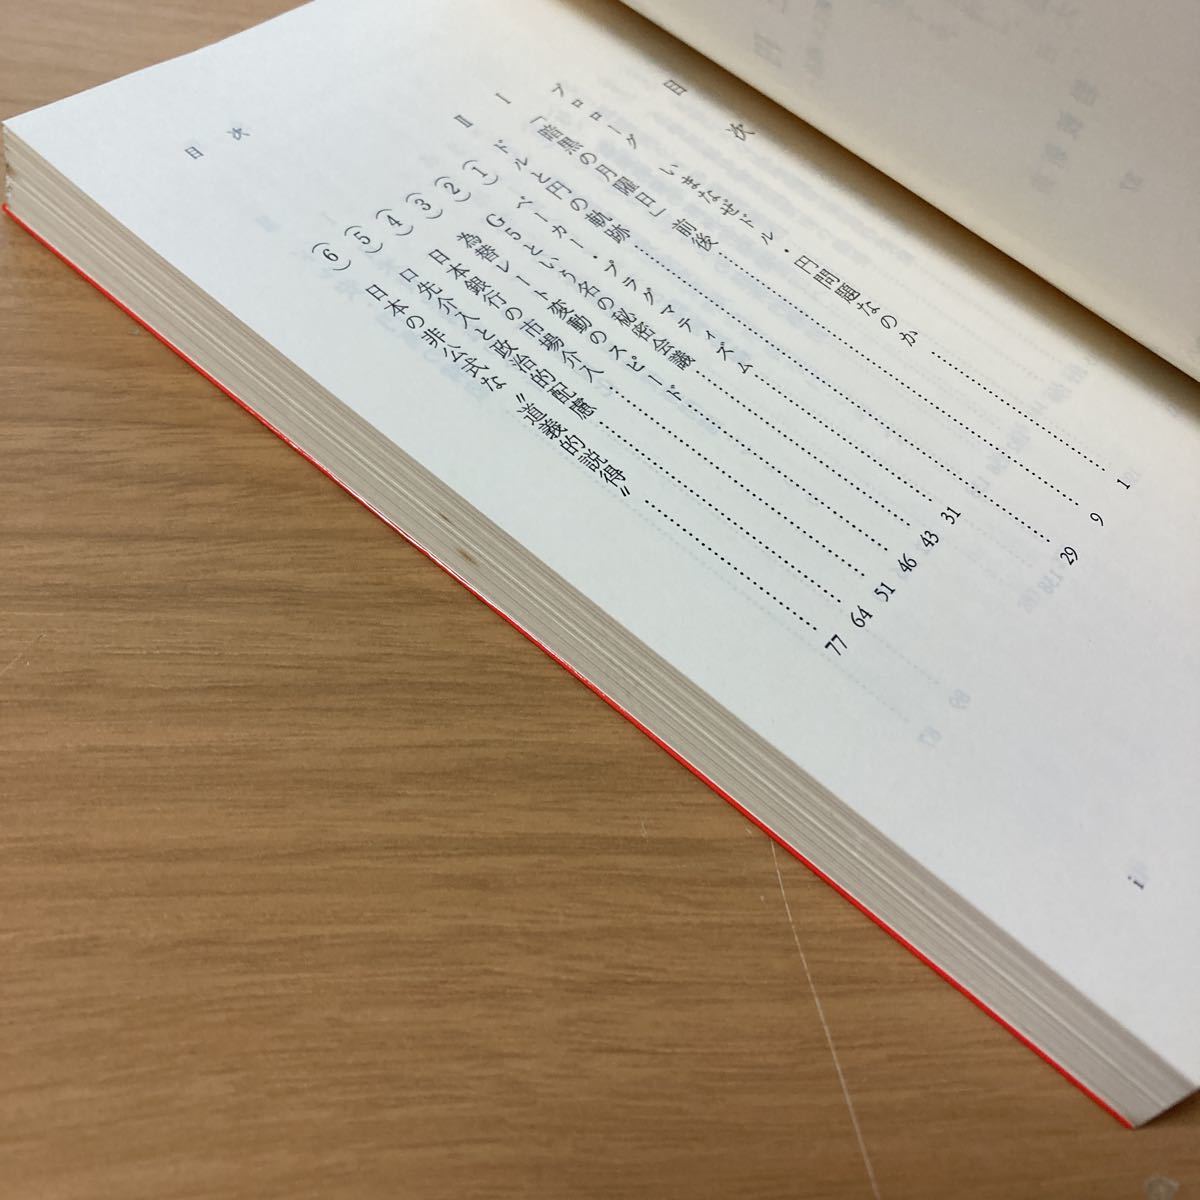 目次
プロローグ いまなぜドル・円問題なのか……………………1
Ⅰ 「暗黒の月曜日」前後……………………9
Ⅱ ドルと円の軌跡……………………29
(1) ベーカー・プラグマティズム……………………31
(2) G5という名の秘密会議……………………43
(3) 為替レート変動のスピード……………………46
(4) 日本銀行の市場介入……………………51
(5) 口先介入と政治的配慮……………………64
(6) 日本の非公式な〝道義的説得〟……………………77
目次
i